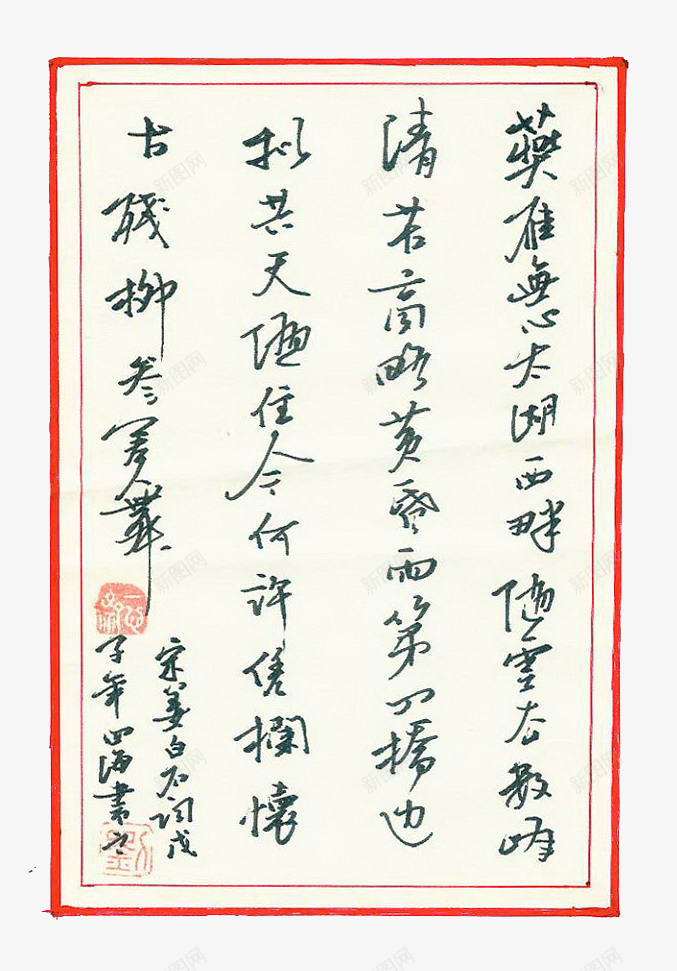 燕雁無心太湖西畔随雲去數峰
清苦商略黄昏雨第四橋边
拟共天随住今何許凭欄懷
古殘柳参差舞
宋姜白石詞戊
子年四海書之
劉
新图网